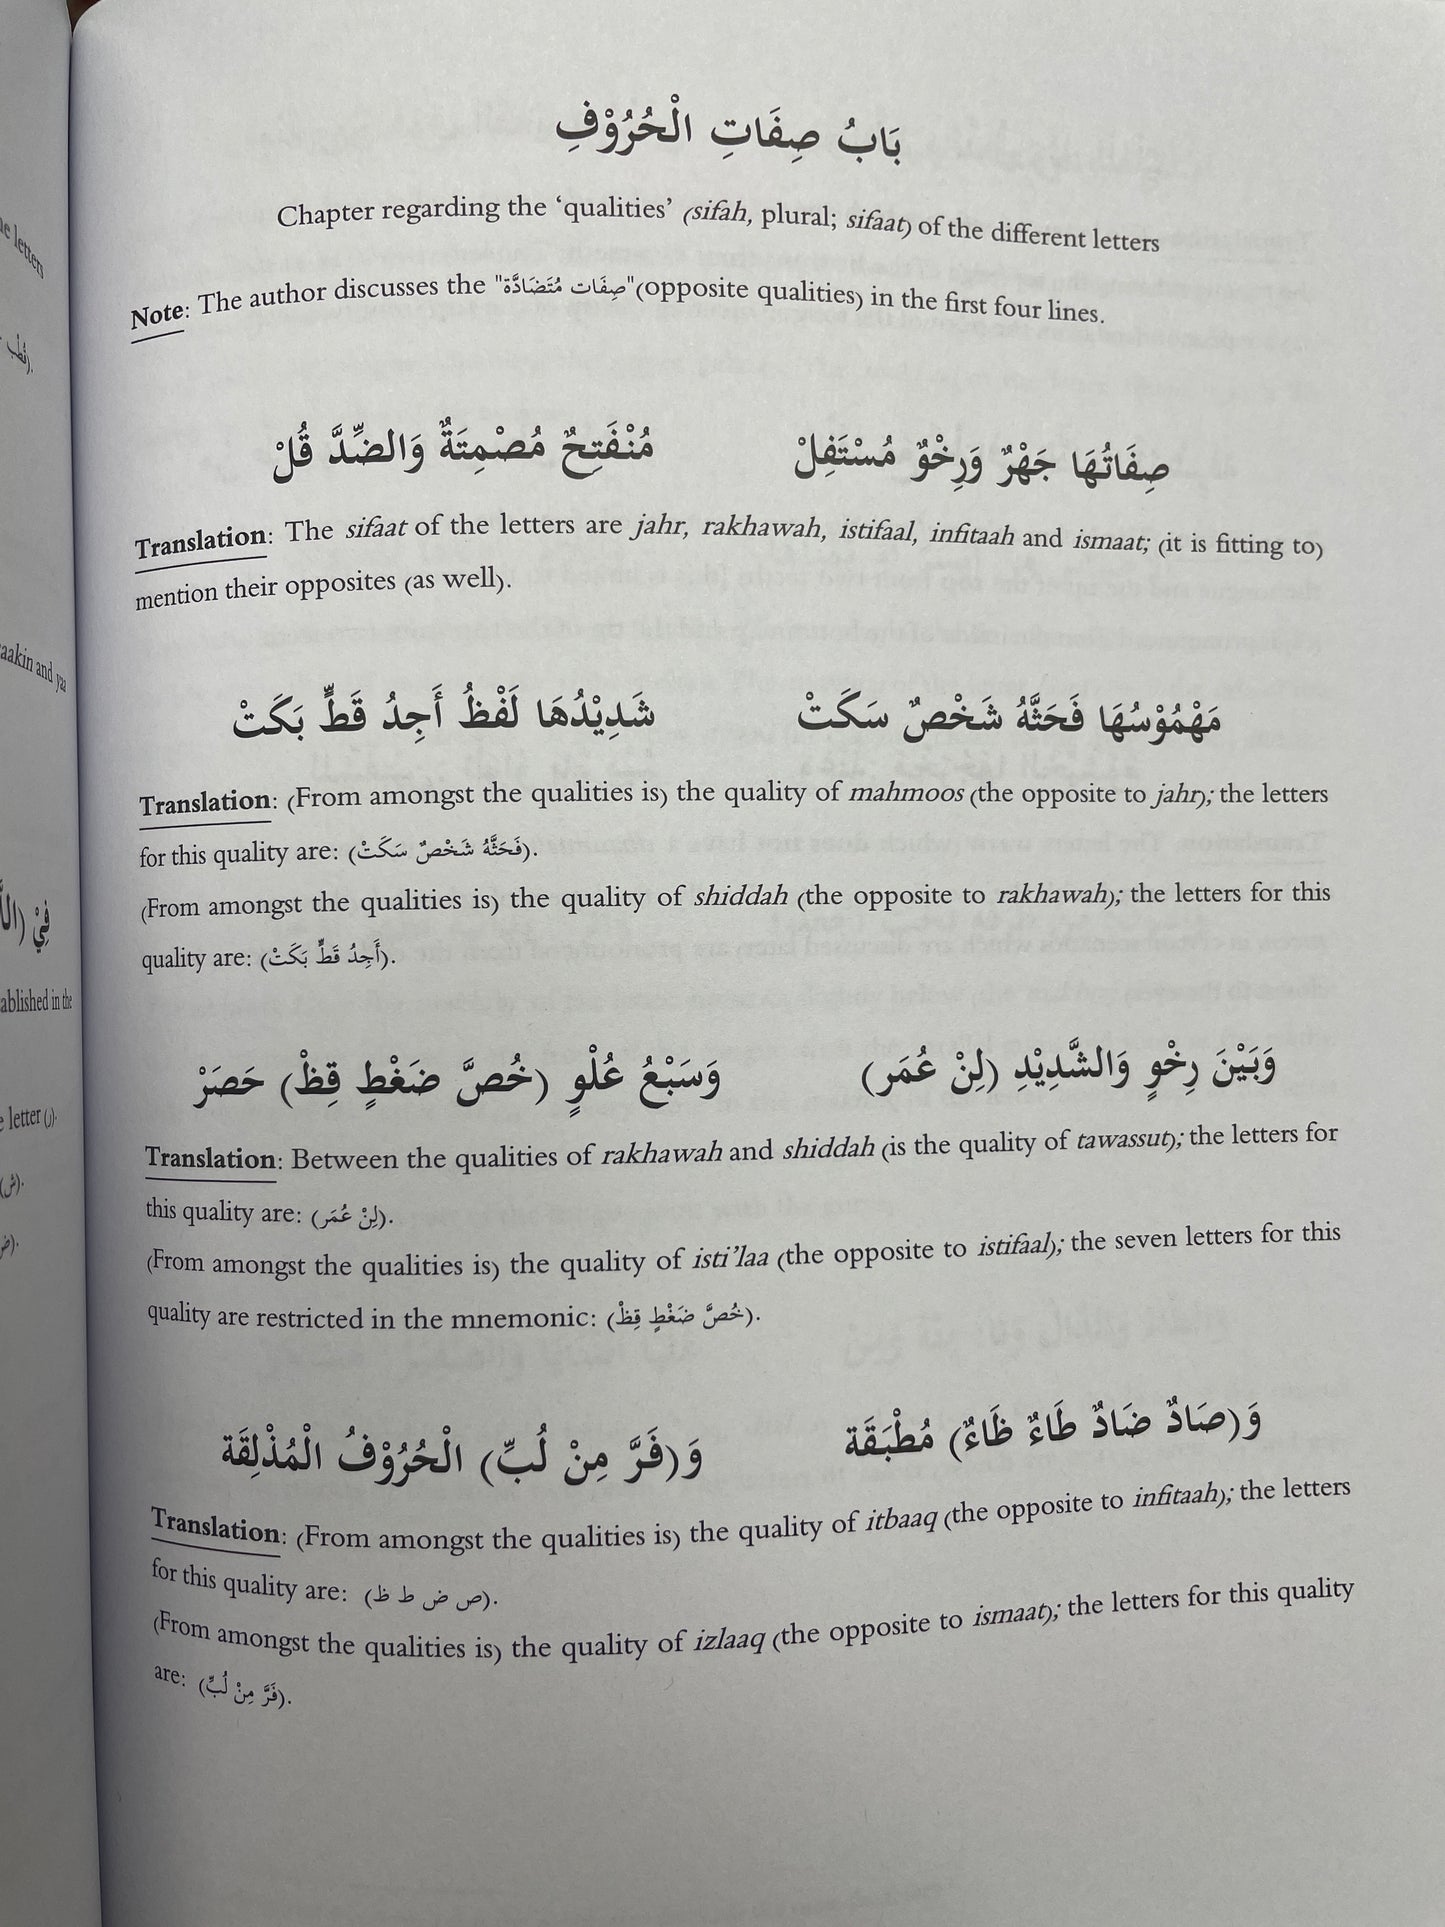 بَابُ صِفَاتِ الْحُرُوْفِ
Chapter regarding the ‘qualities’ (sifah, plural; sifaat) of the different letters
Note: The author discusses the "صِفَات مُتَضَادَّة"(opposite qualities) in the first four lines.
صِفَاتُهَا جَهْرٌ وَرِخْوٌ مُسْتَفِلْ مُنْفَتِحٌ مُصْمِتَةٌ وَالضِّدَّ قُلْ
Translation: The sifaat of the letters are jahr, rakhawah, istifaal, infitaah and ismaat; (it is fitting to)
mention their opposites (as well).
مَهْمُوْسُهَا فَحَثَّهُ شَخْصٌ سَكَتْ شَدِيْدُهَا لَفْظُ أَجِدُ قَطٍّ بَكَتْ
Translation: (From amongst the qualities is) the quality of mahmoos (the opposite to jahr); the letters
for this quality are: (فَحَثَّهُ شَخْصٌ سَكَتْ).
(From amongst the qualities is) the quality of shiddah (the opposite to rakhawah); the letters for this
quality are: (أَجِدُ قَطٍّ بَكَتْ).
وَبَيْنَ رِخْوٍ وَالشَّدِيْدِ (لِنْ عُمَر) وَسَبْعُ عُلْوٍ (خُصَّ ضَغْطٍ قِظْ) حَصَرْ
Translation: Between the qualities of rakhawah and shiddah (is the quality of tawassut); the letters for
this quality are: (لِنْ عُمَر).
(From amongst the qualities is) the quality of isti’laa (the opposite to istifaal); the seven letters for this
quality are restricted in the mnemonic: (خُصَّ ضَغْطٍ قِظْ).
وَ(صَادٌ ضَادٌ طَاءٌ ظَاءٌ) مُطْبَقَة وَ(فَرَّ مِنْ لُبِّ) الْحُرُوْفُ الْمُذْلِقَة
Translation: (From amongst the qualities is) the quality of itbaaq (the opposite to infitaah); the letters
for this quality are: (ص ض ط ظ).
(From amongst the qualities is) the quality of izlaaq (the opposite to ismaat); the letters for this quality
are: (فَرَّ مِنْ لُبِّ).
letters
aakin and yaa
ablished in the
letter (ر).
(ش).